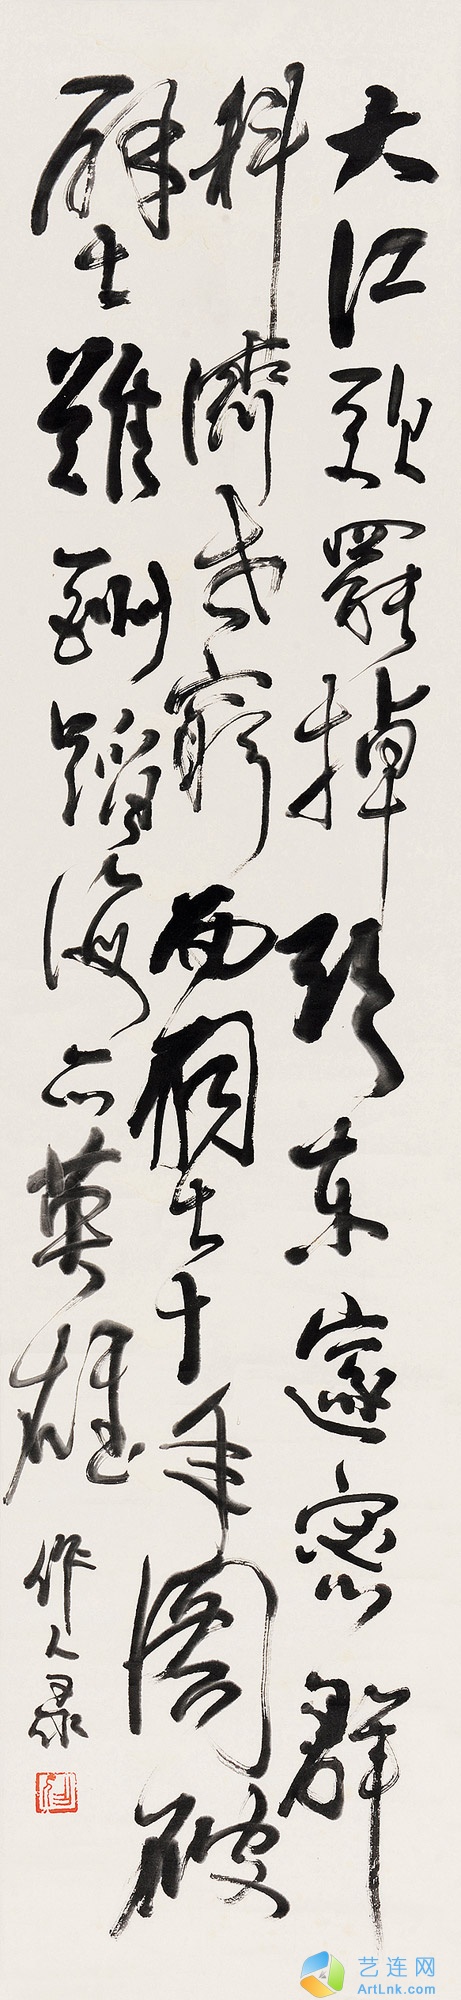 大江歌罷掉頭東邃密群
科濟世窮面壁十年圖破
壁難酬蹈海亦英雄
作人录
艺连网
ArtLnk.com